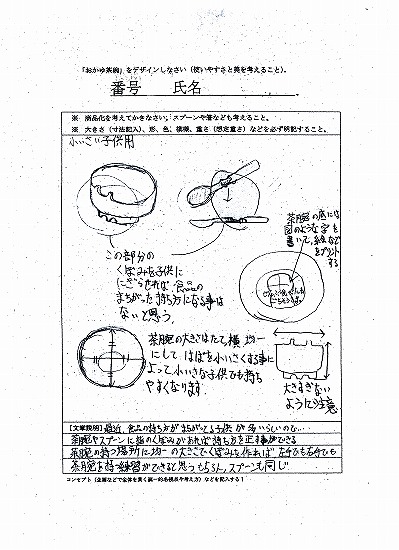 「おかゆ茶碗」をデザインしなさい（使いやすさと美を考えること）。
番号　氏名
※ 商品化を考えてかきなさい。スプーンや箸なども考えること。
※ 大きさ（寸法記入）、形、色、模様、重さ（想定重さ）などを必ず明記すること。
小さい子供用
この部分の
くぼみを子供に
にぎらせれば食品の
まちがった持ち方になる事は
ないと思う。
茶碗の底には
図のような字を
書いて、絵など
をプリント
する
茶碗の大きさはたて、横 均一
にして、はばを小さくする事に
よって、小さな子供でも持ち
やすくなります。
大きすぎない
ように注意
【文章説明】最近、食品の持ち方がまちがってる子供が多いらしいので…
茶碗やスプーンに指のくぼみがあれば持ち方を正す事ができる
茶碗の持つ場所に均一の大きさでくぼみを作れば 左手でも右手でも
茶碗を持つ練習ができると思う もちろん、スプーンも同じ